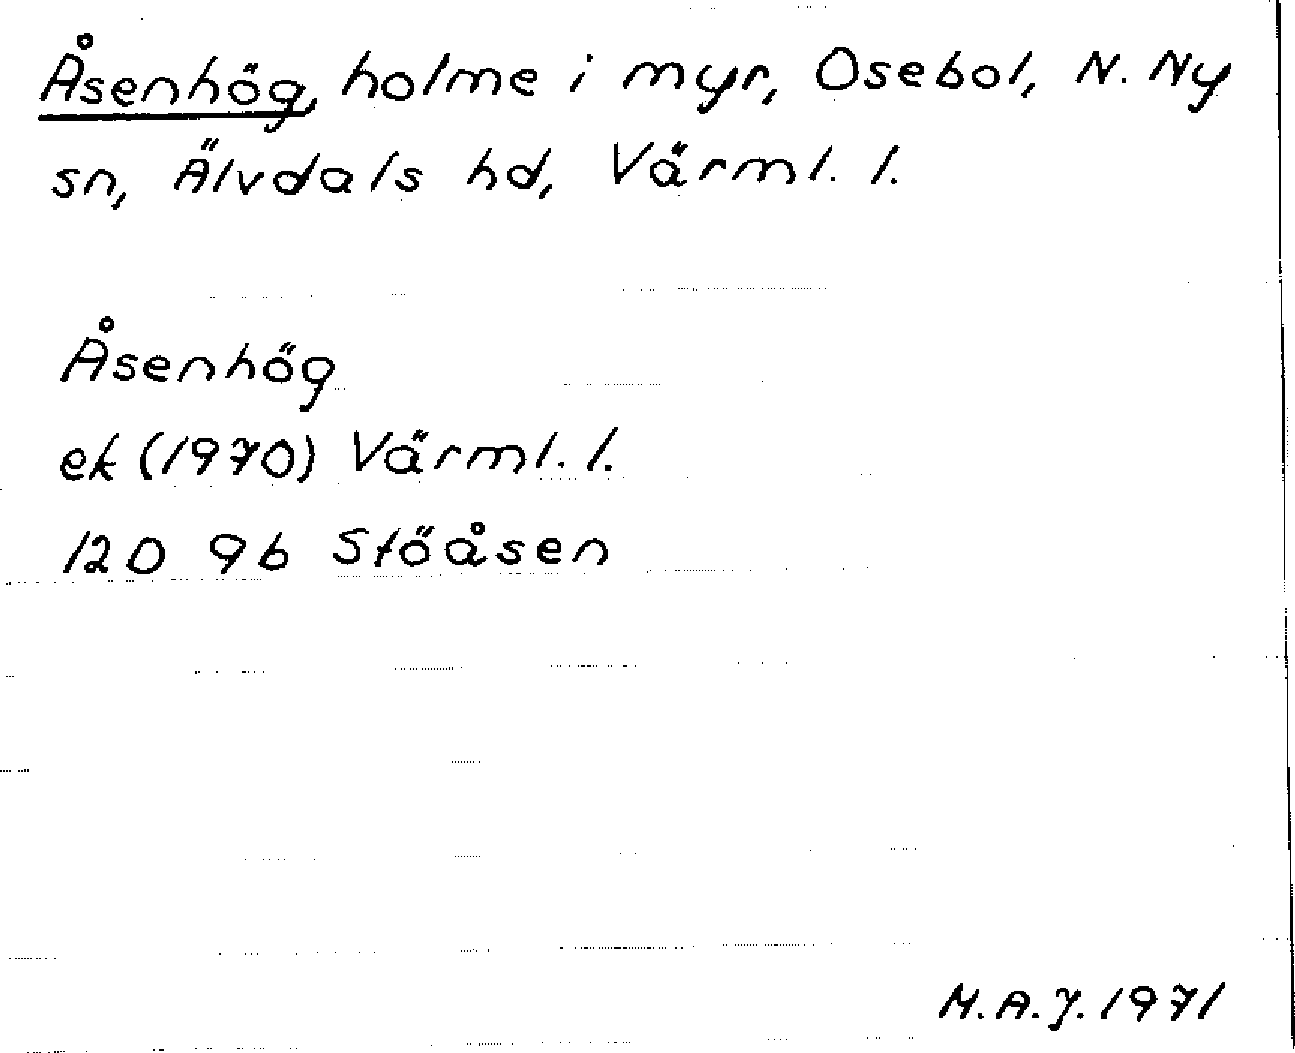 Åsenhög, holme i myr, Osebol, N. Ny
sn, Älvdals hd, Värml. l.
Åsenhög
ek (1970) Värml. l.
120 9b Stöåsen
M.A.J. 1971